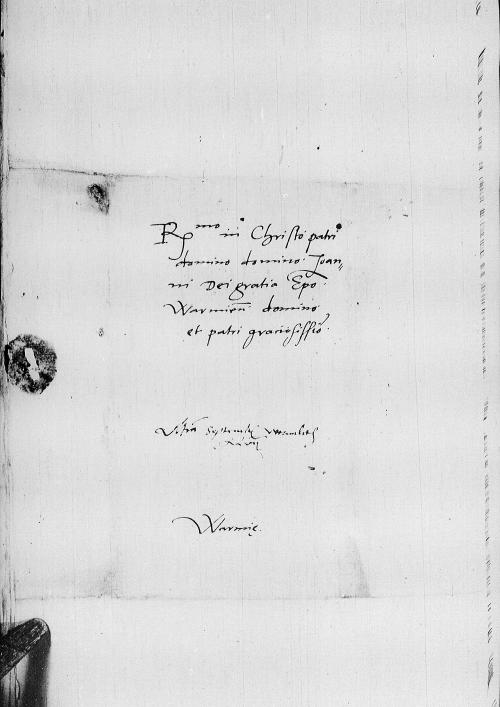 R^mo in Christo patri
domino domino Joan„
ni Dei gratia Epo
Warmien̅ domino
et patri graciosissi͞o
Warmię.